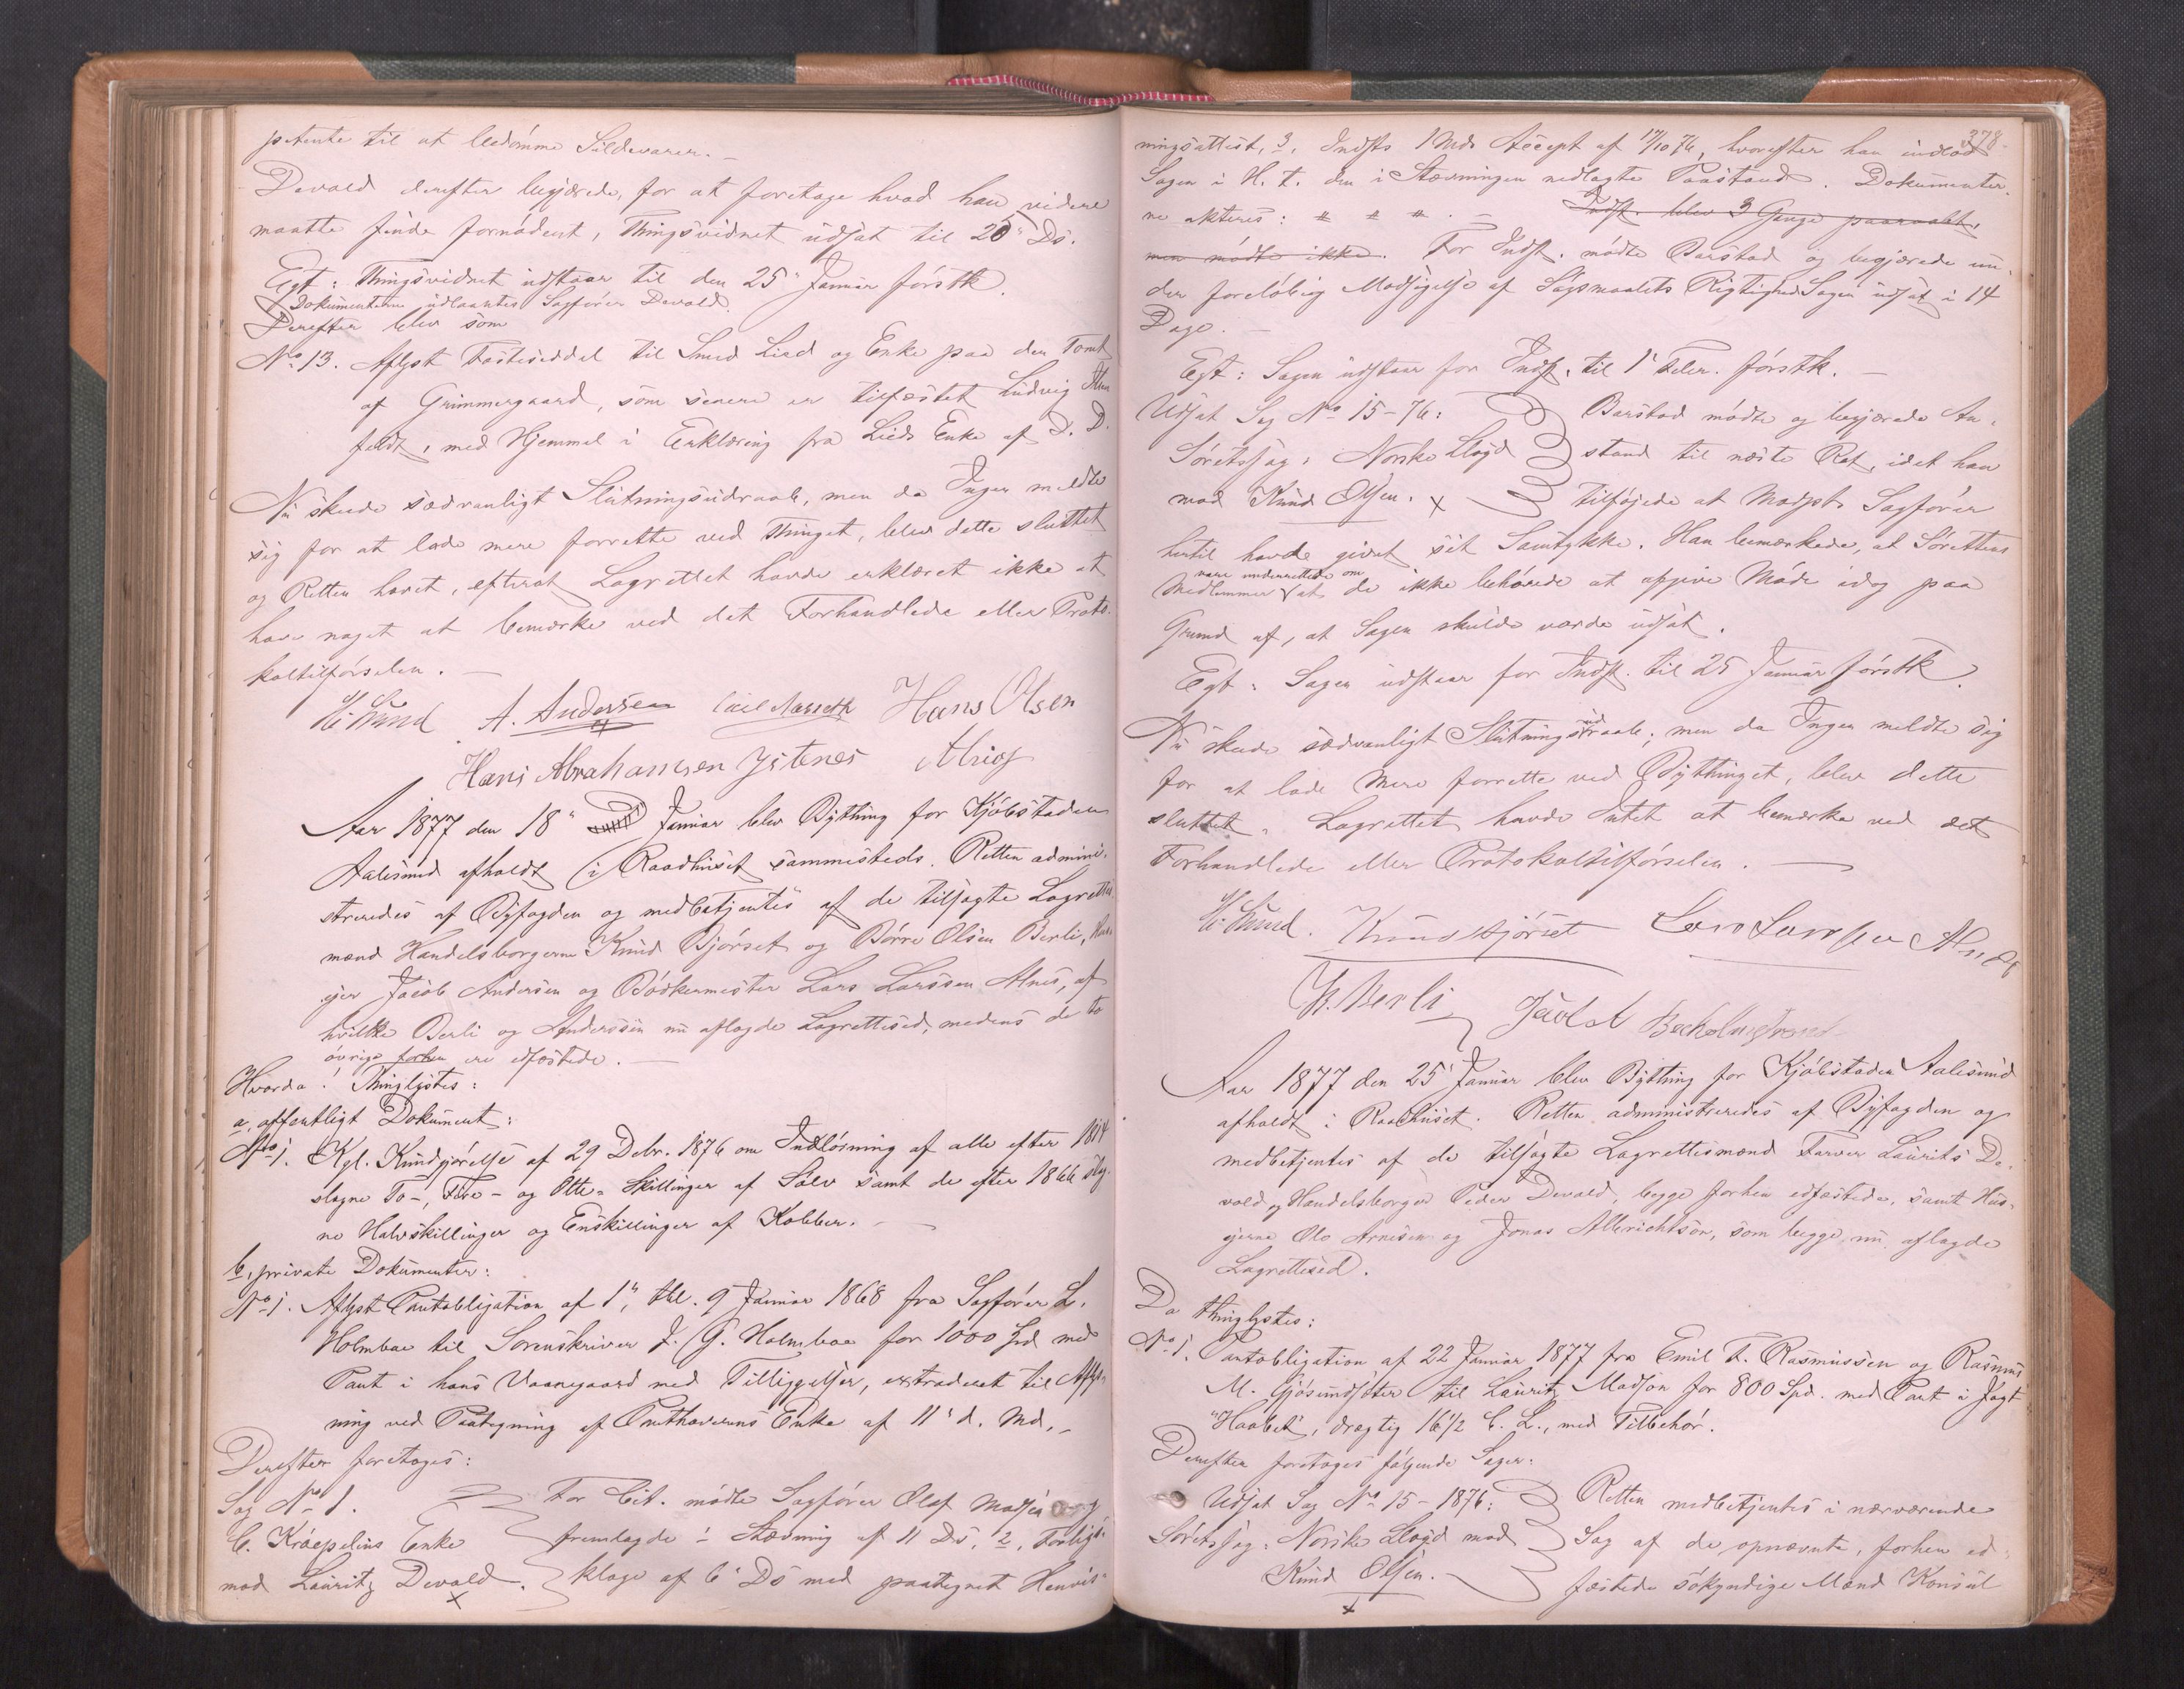 petente til at bedømme Sildevarer. –
Devold derefter begjærede, for at foretage hvad han videre
maatte finde fornødent, Thingsvidnet udsat til 20" Ds.
Egt: Thingsvidnet udstaar til den 25" Januar førstk.
Dokumenterne udlaantes Sagfører Devold.
Derefter blev som
No 13. Aflyst Fæsteseddel til Smed Lied og Enke paa den Tomt
af Grimmergaard, som senere er tilfæstet Ludvig
feldt, med Hjemmel i Erklæring fra Lieds Enke af D. D.
Nu skede sædvanligt Slutningsudraab, men da Ingen meldte
sig for at lade mere forrette ved Thinget, blev dette sluttet
og Retten hævet, efterat Lagrettet havde erklæret ikke at
have noget at bemærke ved det Forhandlede eller Proto-
koltilførselen. –
A. Andersen Hans Olsen
Hans Abrahamsen
Aar 1877 den 18" Januar blev Bything for Kjøbstaden
Aalesund afholdt i Raadhuset sammesteds. Retten admini-
streredes af Byfogden og medbetjentes af de tilsagte Lagrettes
mænd Handelsborgerne Knud Bjørset og Børre Olsen Berli, Hus-
ejer Jacob Andersen og Bødkermester Lars Larssen Alnes, af
hvilke Berli og Anderssen nu aflagde Lagrettesed, medens de to
øvrige forhen ere edfæstede. –
Hvorda! Thinglystes:
a, offentligt Dokument:
No 1. Kgl. Kundgjørelse af 29 Debr. 1876 om Indløsning af alle efter 1814
slagne To-, Fire- og Otte- Skillinger af Sølv samt de efter 1866 slag-
ne Halvskillinger og Enskillinger af Kobber. –
b, private Dokumenter:
No 1. Aflyst Pantobligation af 1", thl. 9 Januar 1868 fra Sagfører L.
Holmboe til Sorenskriver J. G. Holmboe for 1000 Spd med
Pant i hans Vaanegaard med Tilliggelser, extraderet til Aflys-
ning ved Paategning af Panthaverens Enke af 11" d. Md. –
Derefter foretoges:
Sag No 1. For Cit. mødte Sagfører Olaf Madsen og
C. Kræpelins Enke fremlagde 1 Stævning af 11 Ds, 2, Forligs-
mod Lauritz Devold. klage af 6" Ds med paategnet Henvis-
378
ningsattest, 3, Indstes 1 Mds Accept af 17/10 76, hvorefter han indlod
Sagen i H. t. den i Stævningen nedlagte Paastand. Dokumenter-
ne akteres: # # #. – Indst. blev 3 Gange paaraabt,
men mødte ikke. For Indst. mødte Barstad og begjærede un-
der foreløbig Modsigelse af Søgsmaalets Rigtighed Sagen udsat i 14
Dage. –
Egt: Sagen udstaar for Indst. til 1" Febr. førstk. –
Udsat Sag No 15-76: Barstad mødte og begjærede An-
Søretssag: Norske Lloyd stand til næste Ret, idet han
mod Knud Olsen. x tilføjede at Modpts Sagfører
hertil havde givet sit Samtykke. Han bemærkede, at Sørettens
Medlemmer vare underrettede om at de ikke behøvede at afgive Møde idag paa
Grund af, at Sagen skulde vorde udsat.
Egt: Sagen udstaar for Indst. til 25 Januar førstk.
Nu skede sædvanligt Slutningsudraab; men da Ingen meldte sig
for at lade Mere forrette ved Bythinget, blev dette
sluttet. Lagrettet havde Intet at bemærke ved det
Forhandlede eller Protokoltilførselen. –
Knud Bjørset Lars Larssen Alnes
B. Berli
Aar 1877 den 25" Januar blev Bything for Kjøbstaden Aalesund
afholdt i Raadhuset. Retten administreredes af Byfogden og
medbetjentes af de tilsagte Lagrettesmænd Farver Laurits De-
vold og Handelsborger Peder Devold, begge forhen edfæstede, samt Hus-
ejerne Ole Arnesen og Jonas Albrichtsøn, som begge nu aflagde
Lagrettesed.
Da thinglystes:
No 1. Pantobligation af 22 Januar 1877 fra Emil T. Rasmussen og Rasmus
M. Gjøsundsæter til Lauritz Madsen for 800 Spd. med Pant i Jagt
"Haabet", drægtig 16 1/2 C. L., med Tilbehør.
Derefter foretoges følgende Sager:
Udsat Sag No 15-1876: Retten medbetjentes i nærværende
Søretssag: Norske Lloyd mod Sag af de opnævnte, forhen ed-
Knud Olsen. – fæstede søkyndige Mænd Konsul
x